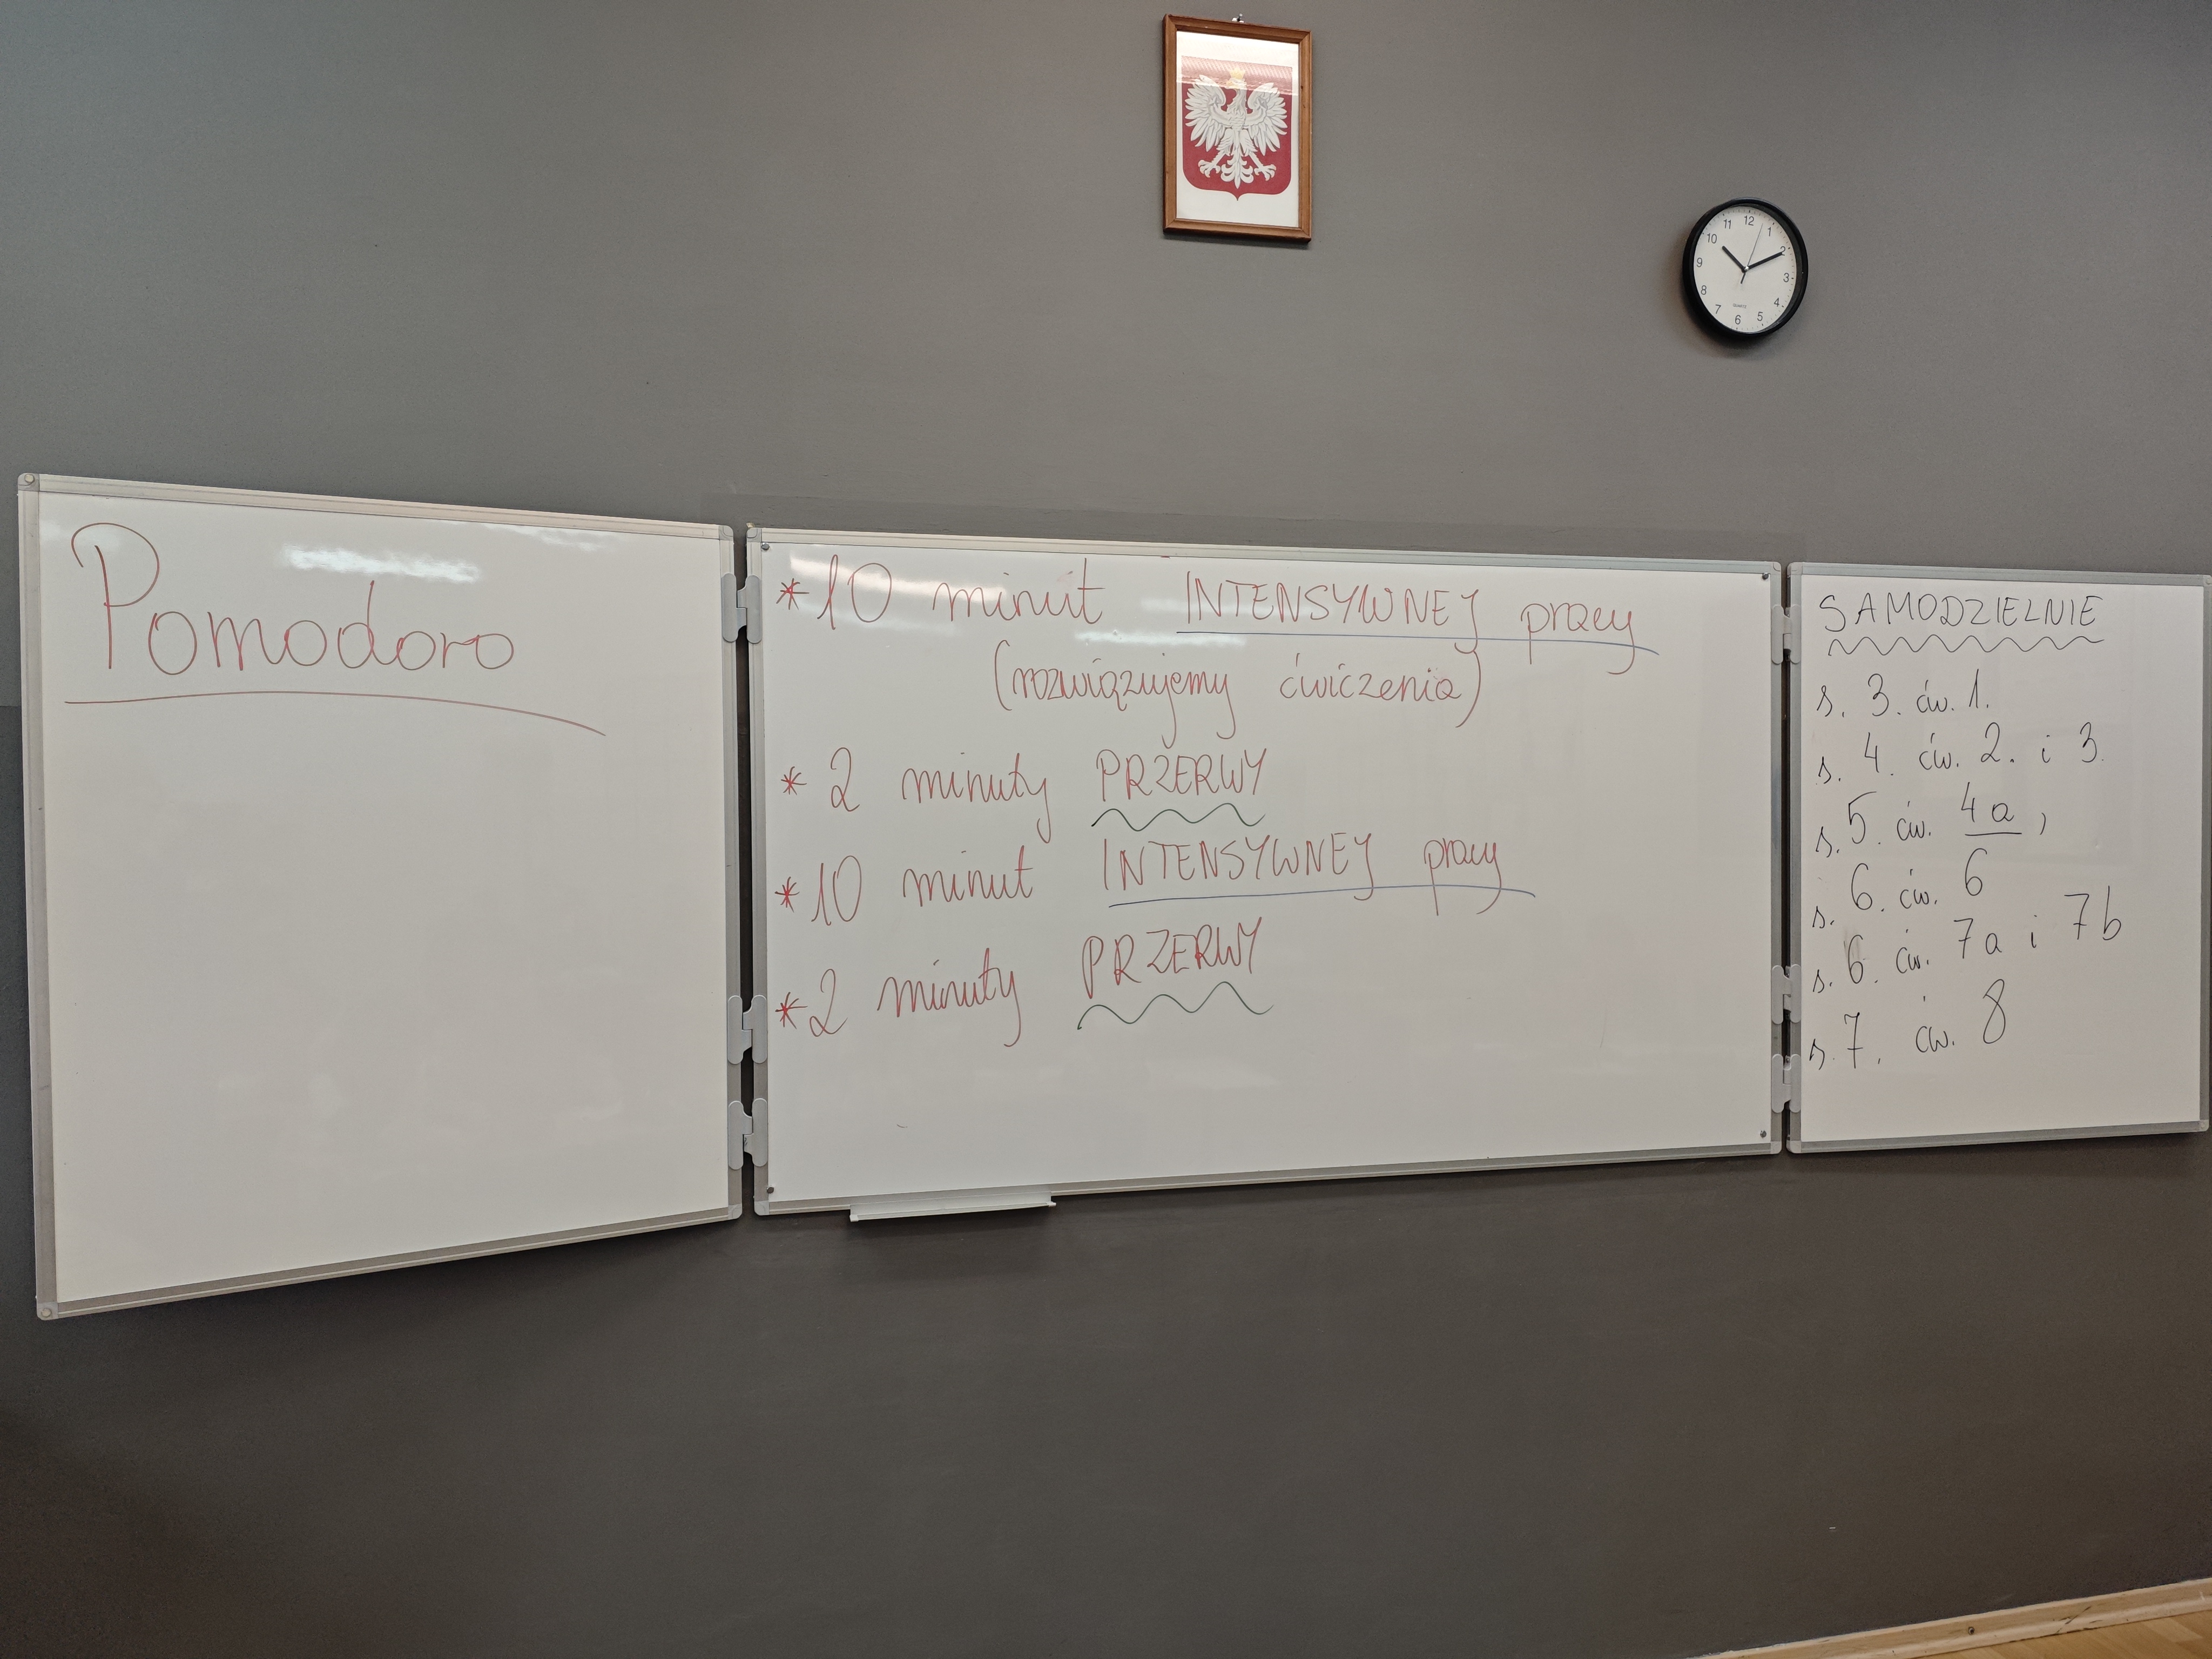 Pomodoro
* 10 minut INTENSYWNEJ pracy
(rozwiązujemy ćwiczenia)
* 2 minuty PRZERWY
* 10 minut INTENSYWNEJ pracy
* 2 minuty PRZERWY
SAMODZIELNIE
s. 3. ćw. 1.
s. 4. ćw. 2. i 3.
s. 5. ćw. 4a,
s. 6. ćw. 6
s. 6. ćw. 7a i 7b
s. 7. ćw. 8
12
1
2
3
4
5
6
7
8
9
10
11